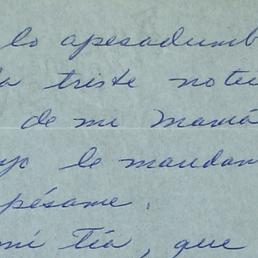 lo apesadumb
triste noti
de mi mamá
yo le mandam
pésame.
mi tía, que